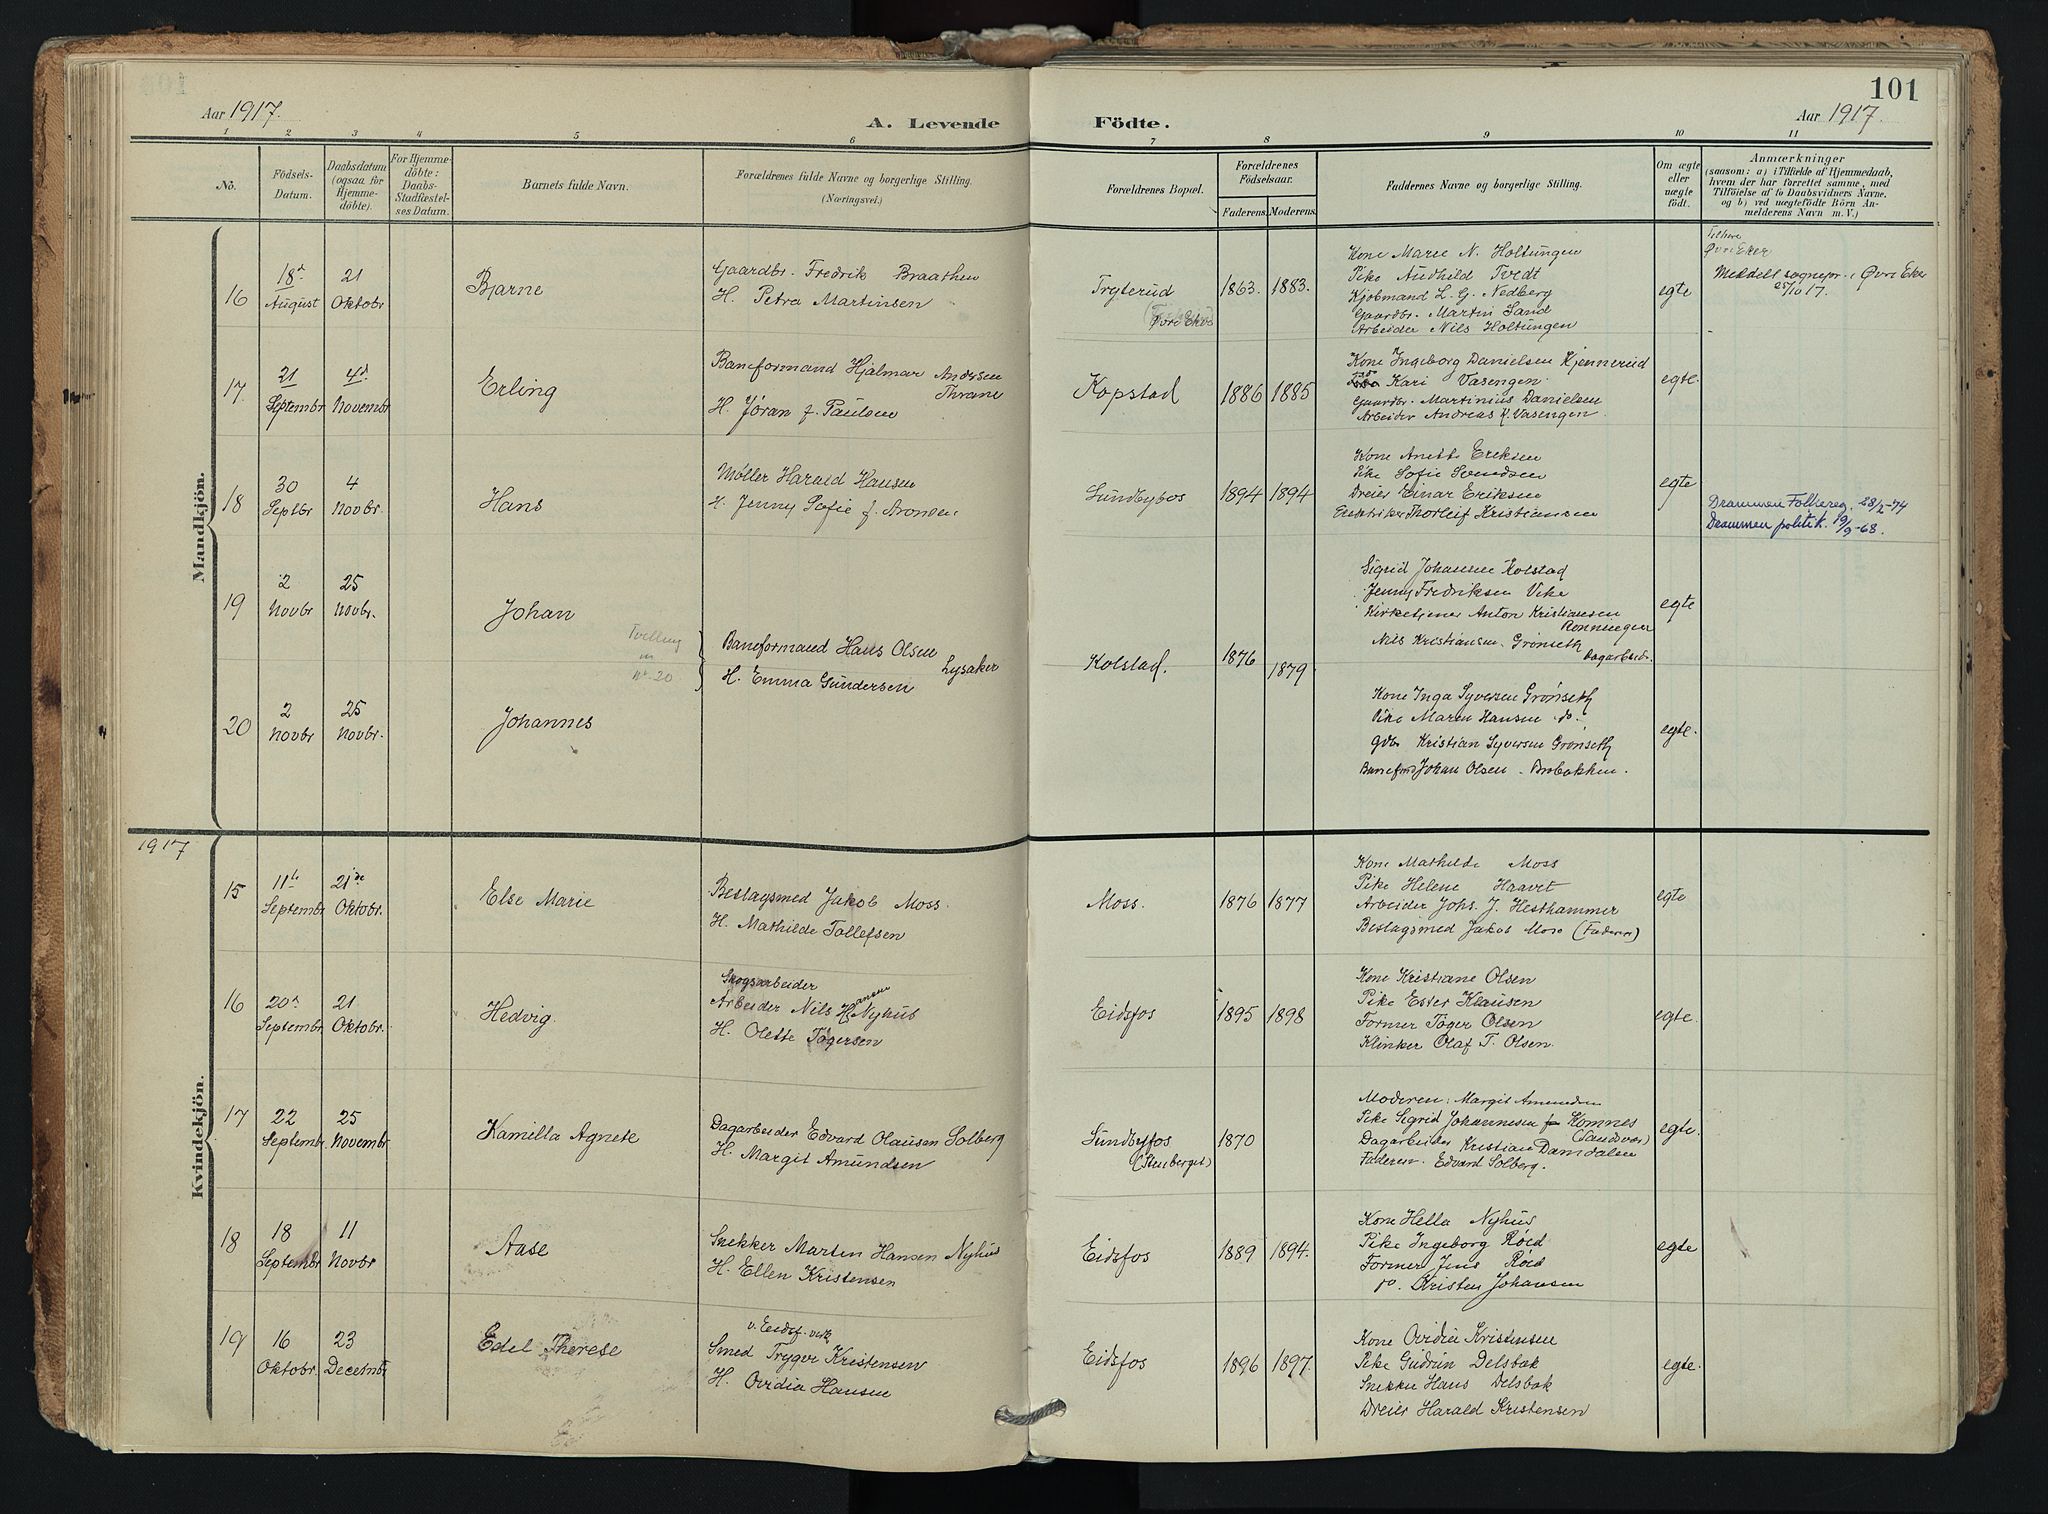 101
Aar 1917.
A. Levende
Födte.
Aar 1917.
1 2 3 4 5 6 7 8 9 10 11
No.
Födsels-
Datum.
Daabsdatum
(ogsaa for
Hjemme-
döbte).
For Hjemme-
döbte:
Daabs-
Stadfæstel-
ses Datum.
Barnets fulde Navn.
Forældrenes fulde Navne og borgerlige Stilling.
(Næringsvei.)
Forældrenes Bopæl.
Forældrenes
Födselsaar.
Faderens. Moderens.
Faddernes Navne og borgerlige Stilling.
Om ægte
eller
uægte
födt.
Anmærkninger
(saasom: a) i Tilfælde af Hjemmedaab,
hvem der har forrettet samme, med
Tilföielse af to Daabsvidners Navne,
og b) ved uægtefödte Börn An-
melderens Navn m. V.)
Mandkjön.
16
18de
August
21
Oktobr
Bjarne
Gaardbr. Fredrik Braathen
H. Petra Martinsen
Tryterud
Øvre Eker
1863. 1883.
Kone Marie N. Holtungen
Pike Audhild Tvedt
Kjøbmand L. G. Nedberg
Gaardbr. Martin Sand
Arbeider Nils Holtungen
egte
Øvre Eker
Meddelt sognepr. i Øvre Eker
25/10 17.
17
21
Septembr
4de
Novembr
Erling
Baneformand Hjalmar Andersen
Thrane
H. Jøran f. Paulsen
Kopstad
1886 1885
Kone Ingeborg Danielsen Kjennerud
Kari Vasengen.
Gaardbr. Martinius Danielsen
Arbeider Andreas K. Vasengen.
egte.
18
30
Septbr
4
Novbr.
Hans
Møller Harald Hansen
H. Jenny Sofie f. Aronsen
Sundbyfos
1894 1894
Kone Anette Eriksen
Pike Sofie Svendsen
Dreier Einar Eriksen
Elektriker Thorleif Kristiansen
egte
Drammen Folkereg. 28/2-74
Drammen politik. 19/9-68.
19
2
Novbr
25
Novbr.
Johan
Tvilling
m
nr. 20
Baneformand Hans Olsen
Lysaker
H. Emma Gundersen
Kolstad.
1876 1879
Sigrid Johansen Kolstad
Jenny Fredriksen Vike
Kirketjener Anton Kristiansen
Rønningen
Nils Kristiansen. Grønseth
Dagarbeidr.
egte
20
2
Novbr
25
Novbr.
Johannes
Kone Inga Syversen Grønseth
Pike Maren Hansen do.
Gdbr Kristian Syversen Grønseth
Banefmd Johan Olsen - Brobakken.
egte.
1917
Kvindekjön.
15
11te
Septembr
21de
Oktobr.
Else Marie
Beslagsmed Jakob Moss.
H. Mathilde Tollefsen
Moss.
1876 1877
Kone Mathilde Moss
Pike Helene Haavet
Arbeider Johs. J. Hesthammer
Beslagsmed Jakob Moss (Faderen)
egte
16
20de
Septembr
21
Oktobr.
Hedvig.
Skogsarbeider
Arbeider Nils Hansen Nyhus
H. Olette Tøgersen
Eidsfos
1895 1898
Kone Kristiane Olsen
Pike Ester Klausen
Former Tøger Olsen
Klinker Olaf T. Olsen.
egte.
17
22
Septembr.
25
Novembr.
Kamilla Agnete
Dagarbeider Edvard Olausen Solberg
H. Margit Amundsen
Sundbyfos
(Stenberget)
1870
Moderen: Margit Amundsen
Pike Sigrid Johannesen Komnes
(Sandsvær)
Dagarbeider Kristian Damdalen
Faderen. Edvard Solberg.
egte.
18
18
Septembr
11
Novbr
Aase
Snekker Martin Hansen Nyhus
H. Ellen Kristensen
Eidsfos
1889 1894.
Kone Hella Nyhus
Pike Ingeborg Røed
Former Jens Røed
do. Kristen Johansen
egte
19
16
Oktobr.
23
Decembr
Edel Therese
v. Eidsf. verk
Smed Trygve Kristensen
H. Ovidia Hansen
Eidsfos
1896 1897.
Kone Ovidia Kristensen
Pike Gudrun Delsbak
Snekker Hans Delsbak
Dreier Harald Kristensen
egte.